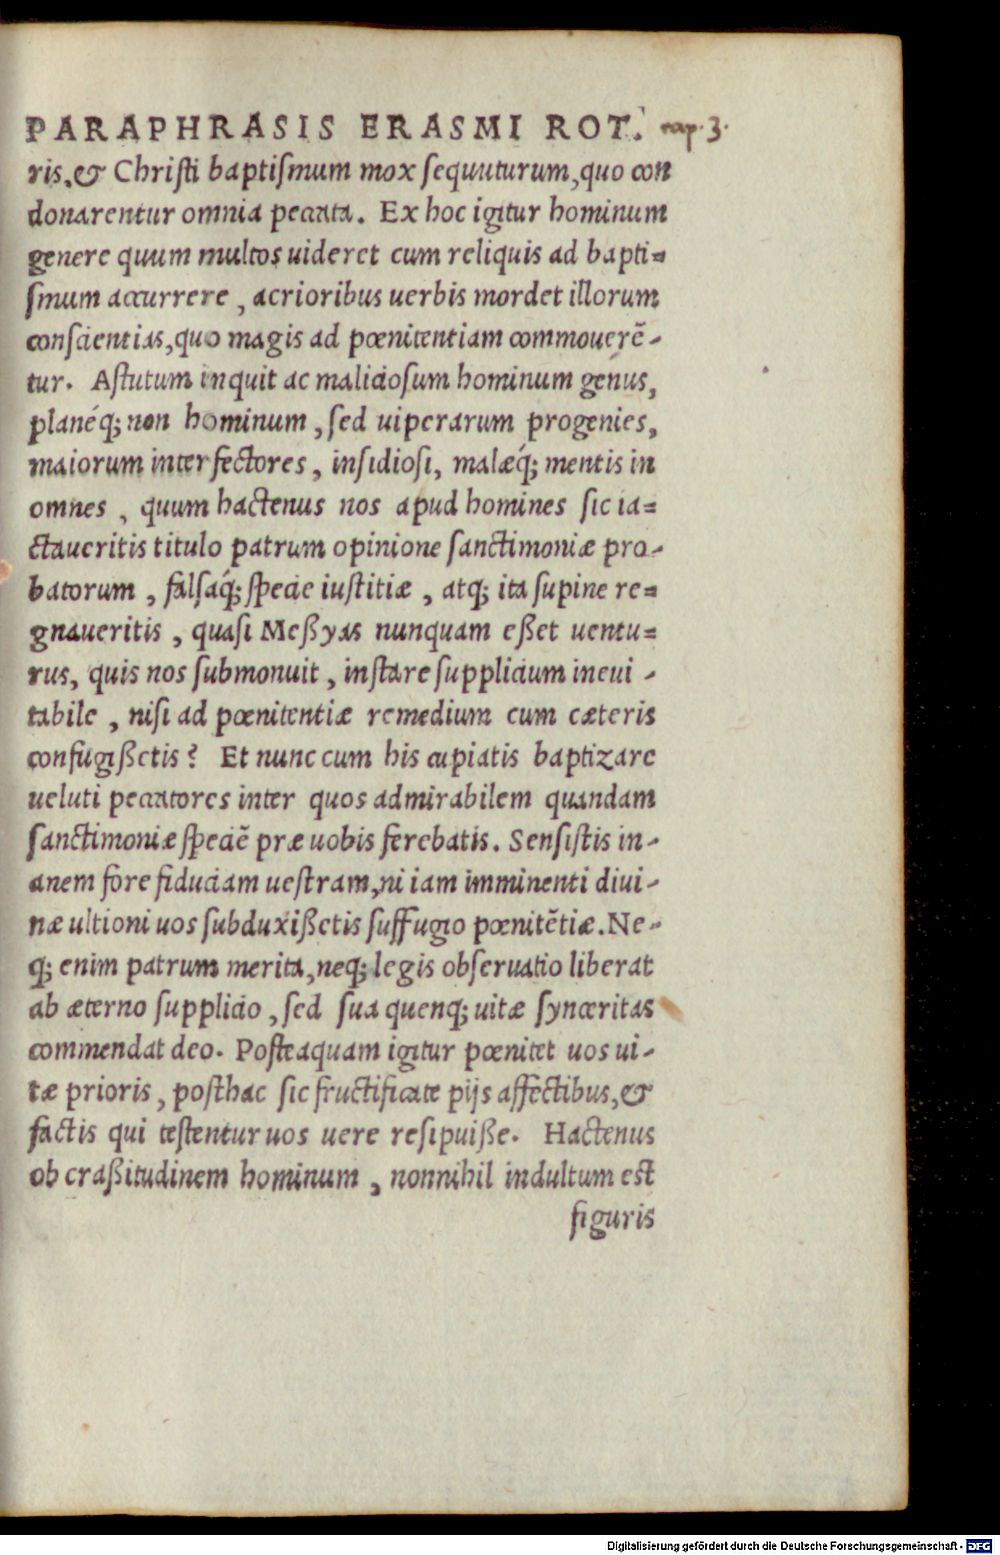 PARAPHRASIS ERASMI ROT. cap. 3.
ris, & Christi baptiſmum mox ſequuturum, quo con
donarentur omnia peccata. Ex hoc igitur hominum
genere quum multos uideret cum reliquis ad bapti=
ſmum accurrere, acrioribus uerbis mordet illorum
conſcientias, quo magis ad pœnitentiam commouerẽ-
tur. Aſtutum inquit ac malicioſum hominum genus,
planéq; non hominum, ſed uiperarum progenies,
maiorum interfectores, inſidioſi, malæq́; mentis in
omnes, quum hactenus nos apud homines ſic ia=
ctaueritis titulo patrum opinione ſanctimoniæ pro-
batorum, falſaq́; ſpecie iuſtitiæ, atq; ita ſupine re=
gnaueritis, quaſi Meßyas nunquam eßet uentu=
rus, quis nos ſubmonuit, inſtare ſupplicium ineui-
tabile, niſi ad pœnitentiæ remedium cum cæteris
confugißetis? Et nunc cum his cupiatis baptizare
ueluti peccatores inter quos admirabilem quandam
ſanctimoniæ ſpeciẽ præ uobis ferebatis. Senſiſtis in-
anem fore fiduciam ueſtram, ni iam imminenti diui-
næ ultioni uos ſubduxißetis ſuffugio pœnitẽtiæ. Ne-
q; enim patrum merita, neq; legis obſeruatio liberat
ab æterno ſupplicio, ſed ſua quenq; uitæ ſynceritas
commendat deo. Poſteaquam igitur pœnitet uos ui-
tæ prioris, poſthac ſic fructificate pijs affectibus, &
factis qui teſtentur uos uere reſipuiße. Hactenus
ob craßitudinem hominum, nonnihil indultum eſt
figuris
Digitalisierung gefördert durch die Deutsche Forschungsgemeinschaft - DFG